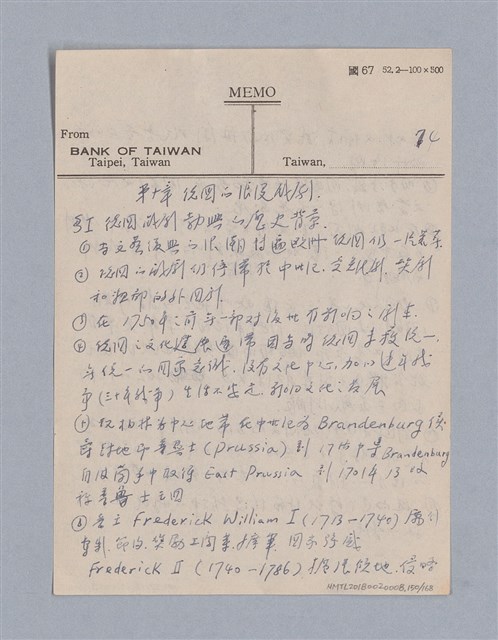 國 67 52.2—100×500
MEMO
From
BANK OF TAIWAN
Taipei, Taiwan
Taiwan,
74
第十章 德國的浪漫戲劇.
§I 德國戲劇勃興的歷史背景.
① 當文藝復興的浪潮普遍歐洲 德國仍一片蕭条
② 德國的戲劇仍停滯於中世紀 笑劇
和 的外國劇.
③ 在1750年之前無一部對後世有影响之劇本.
④ 德國之文化進展遲滯因当時德國未被統一.
無統一的國家意識, 沒有文化中心, 加以連年戰
爭(三十年戰爭)生活不安定, 影响文化之發展
⑤ 柏林為中心地帶在中世紀為Brandenburg侯
封地 普魯士(Prussia) 到17 Brandenburg
手中取得East Prussia 到1701年 13
普魯士王國
⑥ 普王Frederick William I (1713—1740)
節約, 獎励工商業, 擴軍, 國
Frederick II (1740—1786) 擴張領地, 侵略
HMTL20180020008,150/168